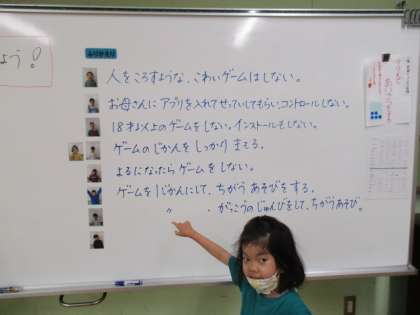 よう!
ふりかえり
人をころすような、こわいゲームはしない。
お母さんにアプリを入れてせっていしてもらいコントロールしない。
18才以上のゲームをしない。インストールもしない。
ゲームのじかんをしっかりまもる。
よるになったらゲームをしない。
ゲームを1じかんにして、ちがうあそびをする。
〃 、がっこうのじゅんびをして、ちがうあそび。